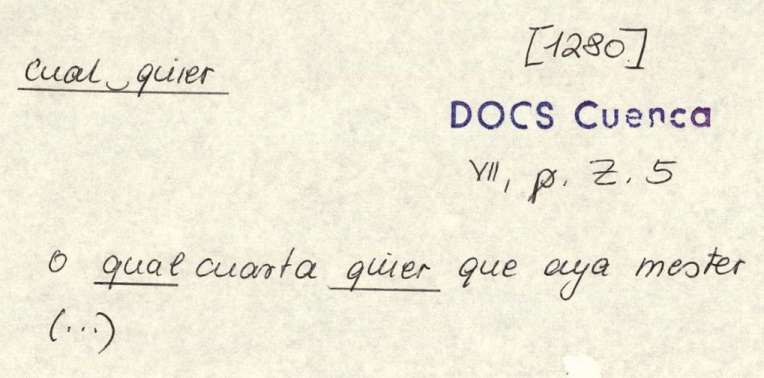 cual quier
[1280]
DOCS Cuenca
VII, p. Z. 5
o qual cuarta quier que aya mester
(...)